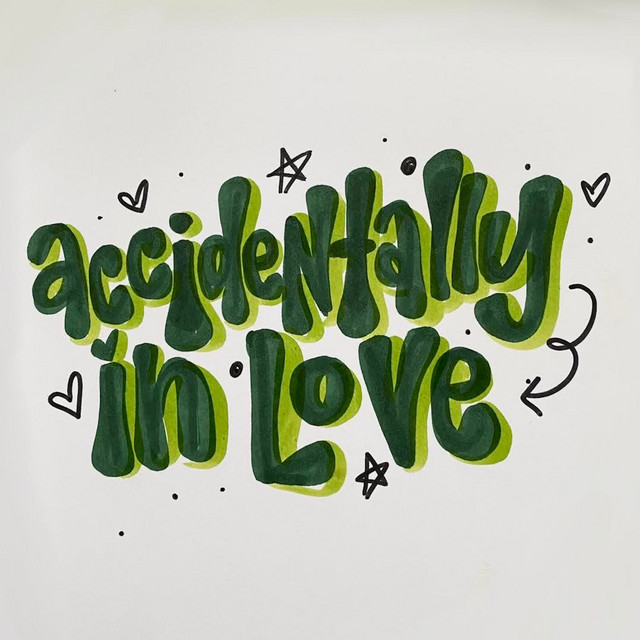 accidentally
in Love